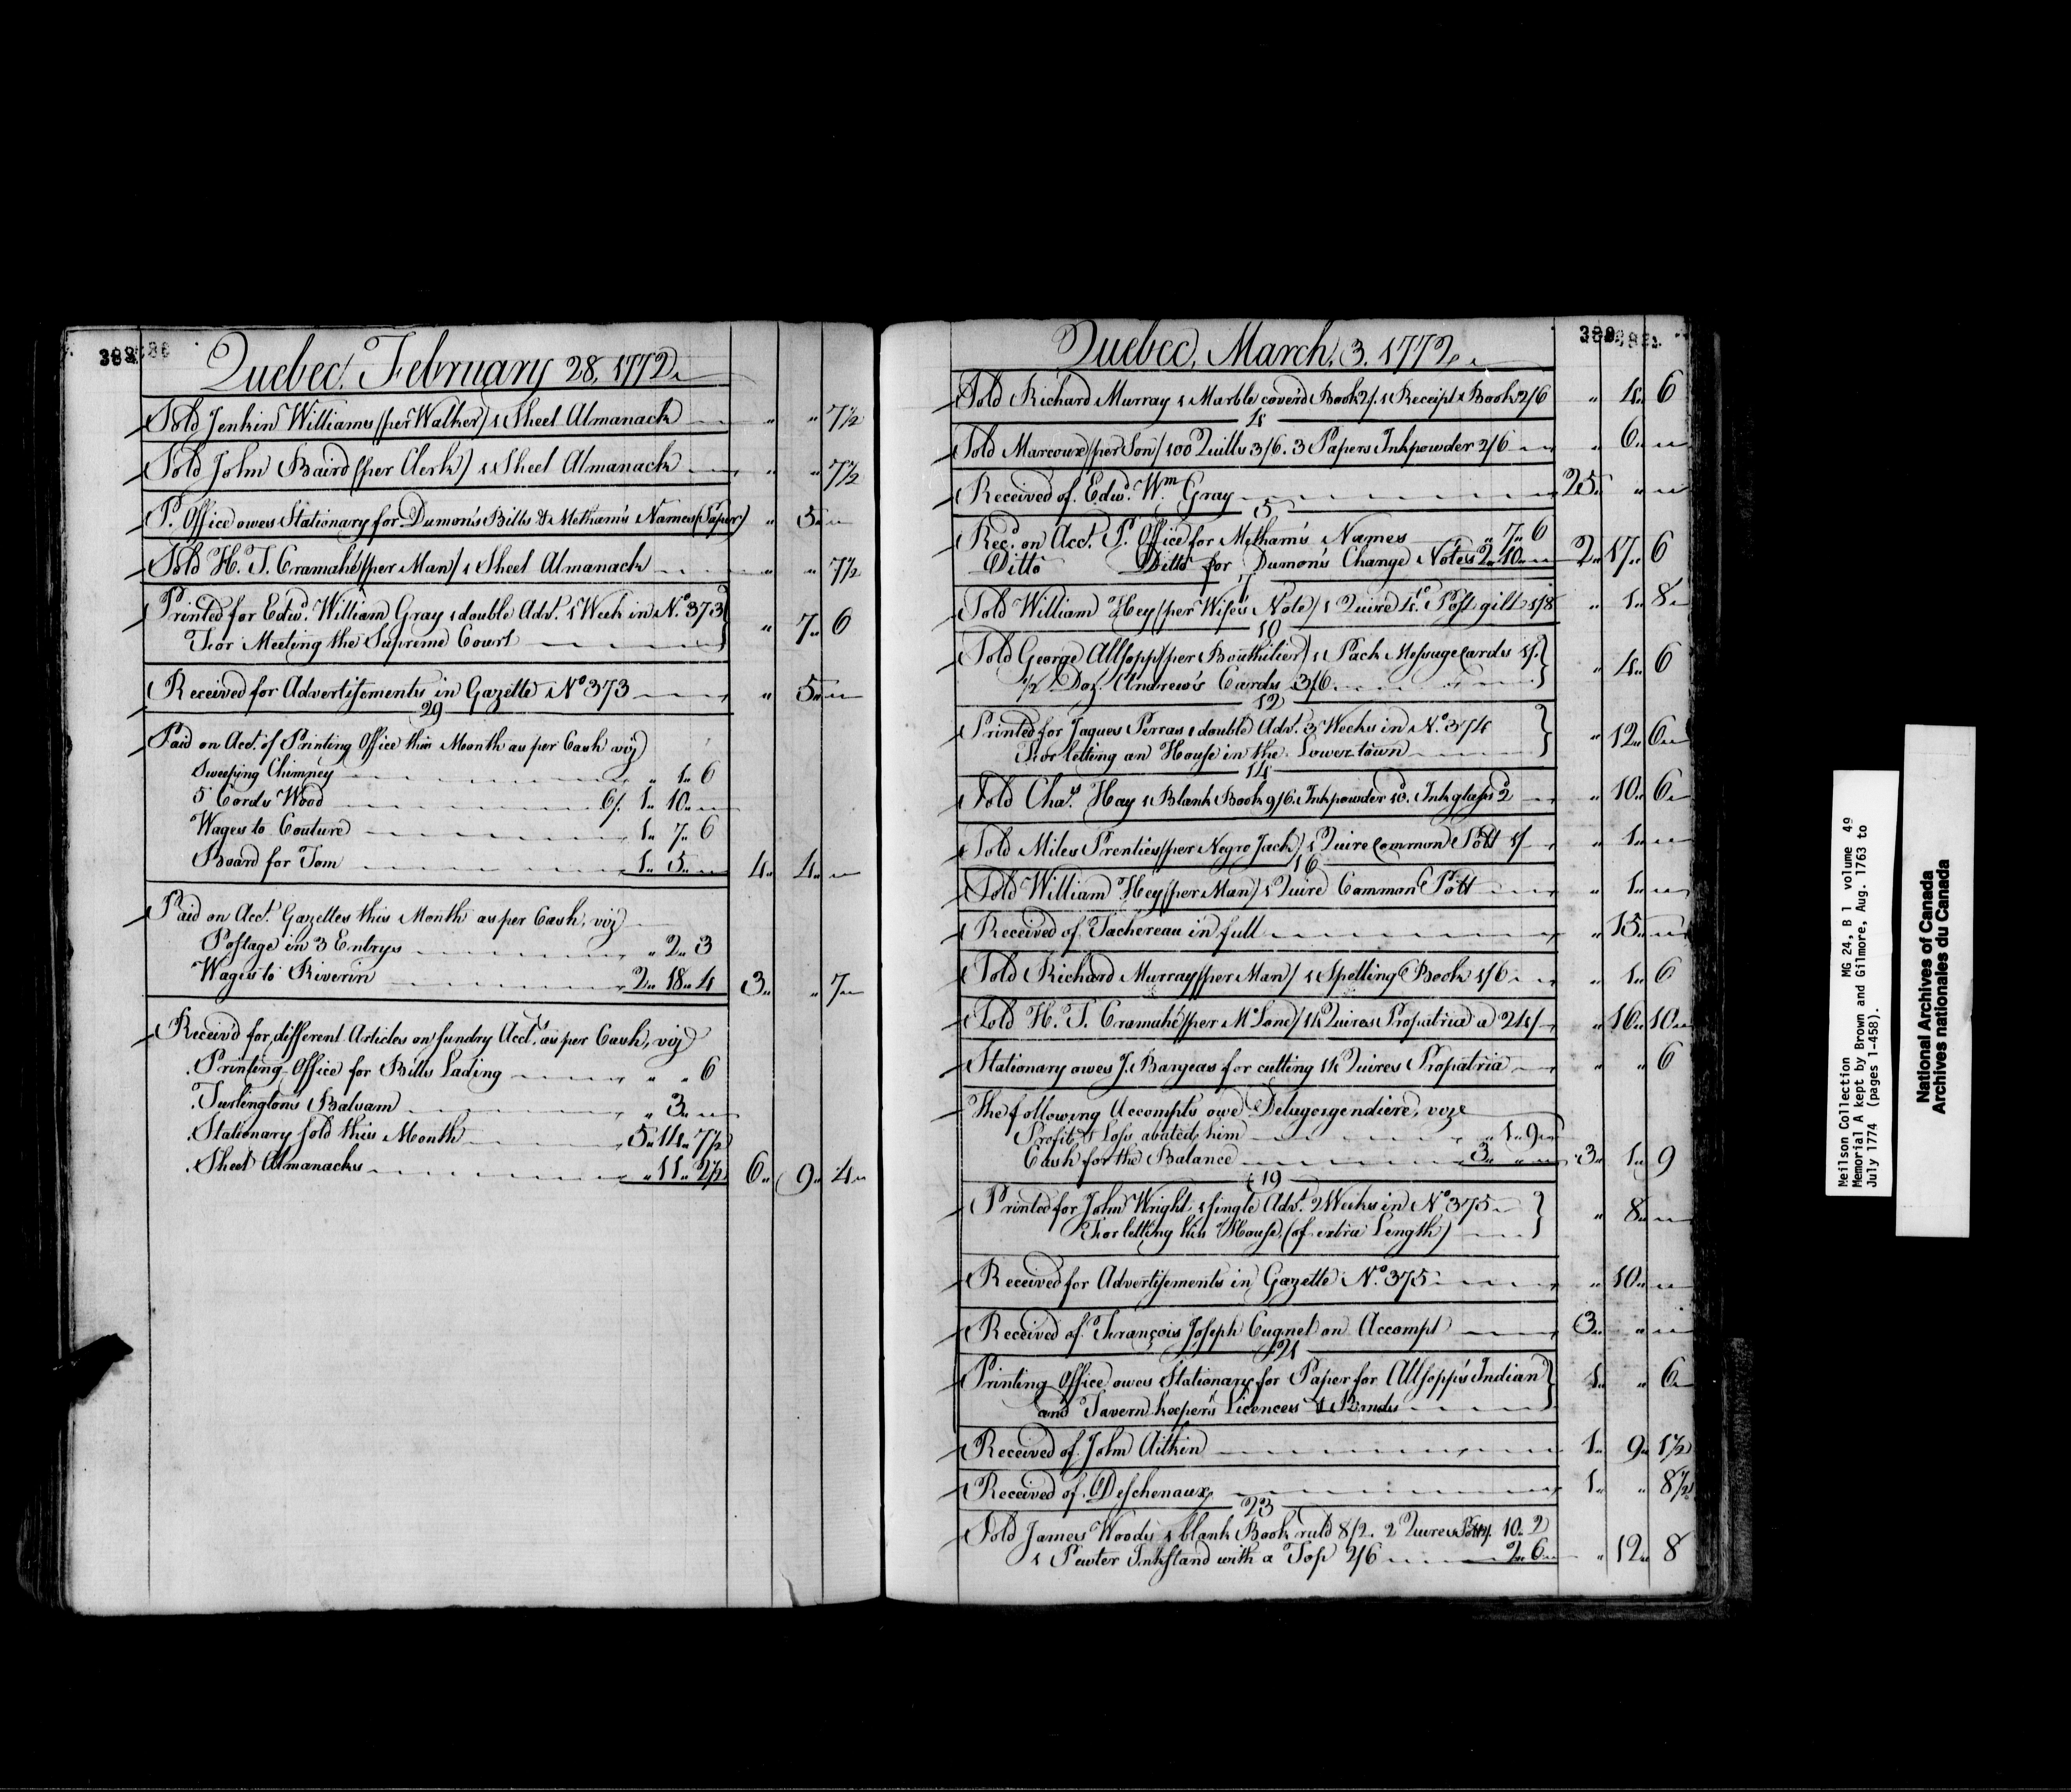 Quebec, February 28, 1772.
Sold Jenkin Williams (per Walker) 1 Sheet Almanack " " 7½
Sold John Baird (per Clerk) 1 Sheet Almanack " " 7½
P. Office owes Stationary for Dumon's Bills & Metham's Names (Paper) " 5 "
Sold H. T. Cramahé (per Man) 1 Sheet Almanack " " 7½
Printed for Edwd. William Gray 1 double Advt. 1 Week in No. 373
For Meeting the Supreme Court " 7 " 6
Received for Advertisements in Gazette No 373 " 5 "
29
Paid on Acct. of Printing Office this Month as per Cash viz
Sweeping Chimney " 1 " 6
5 Cords Wood 6/. 1 " 10 "
Wages to Couture 1 " 7 " 6
Board for Tom 1 " 5 " 4 " 4 "
Paid on Acct. Gazettes this Month as per Cash, viz
Postage in 3 Entrys " 2 " 3
Wages to Riverin 2 " 18 " 4 3 " " 7
Receiv'd for different Articles on sundry Accts. as per Cash, viz
Printing Office for Bills Lading " " 6
Turlington's Balsam " 3 "
Stationary sold this Month 5 " 14 " 7½
Sheet Almanacks " 11 " 2½ 6 " 9 " 4
Quebec, March, 3. 1772,
Sold Richard Murray 1 Marble cover'd Book 2/. 1 Receipt Book 2/6 " 4 " 6
4
Sold Marcoux (per Son) 100 Quills 3/6. 3 Papers Inkpowder 2/6 " 6 "
Received of Edwd. Wm Gray 25 " "
5
Recd. on Acct. P. Office for Metham's Names " 7 " 6
Ditto Ditto for Dumon's Change Notes 2 " 10 " 2 " 17 " 6
7
Sold William Hey (per Wife's Note) 1 Quire 4to. Post gilt 1/8 " 1 " 8
10
Sold George Allsopp (per Bouthilier) 1 Pack Message Cards 1/.
½ Doz. Andrew's Cards 3/6 " 4 " 6
12
Printed for Jaques Perras 1 double Advt. 3 Weeks in No. 374
For letting an House in the Lower-town " 12 " 6
14
Sold Chas. Hay 1 Blank Book 9/6. Inkpowder 10d. Inkglass 2 " 10 " 6
Sold Miles Prenties (per Negro Jack) 1 Quire Common Pott 1/ " 1 "
16
Sold William Hey (per Man) 1 Quire Common Pott " 1 "
Received of Tachereau in full " 15 "
Sold Richard Murray (per Man) 1 Spelling Book 1/6 " 1 " 6
Sold H. T. Cramahé (per ) 14 Quires Propatria a " 16 " 10
Stationary owes J. Banjeas for cutting 14 Quires Propatria " " 6
The following Accompts owe Delagorgendiere, vizt
Profit & Loss abated him " 1 " 9
Cash for the Balance 3 " " 3 " 1 " 9
19
Printed for John Wright, 1 single Advt. 2 Weeks in No 375
For letting his House, (of extra Length) " 8 "
Received for Advertisements in Gazette No. 375 " 10 "
Received of François Joseph Cugnet on Accompt 3 " "
21
Printing Office owes Stationary for Paper for Allsopp's Indian
and Tavern-keeper's Licences & Bonds 1 " " 6
Received of John Aitkin 1 " 9 " 1½
Received of Deschenaux 1 " " 8½
23
Sold James Woods 1 blank Book rul'd 8/2. 2 Quires Pott 10 " 2
1 Pewter Inkstand with a Top 2/6 2 " 6 " 12 " 8
Neilson Collection MG 24, B 1 volume 49
Memorial A kept by Brown and Gilmore, Aug. 1763 to
July 1774 (pages 1-458).
National Archives of Canada
Archives nationales du Canada